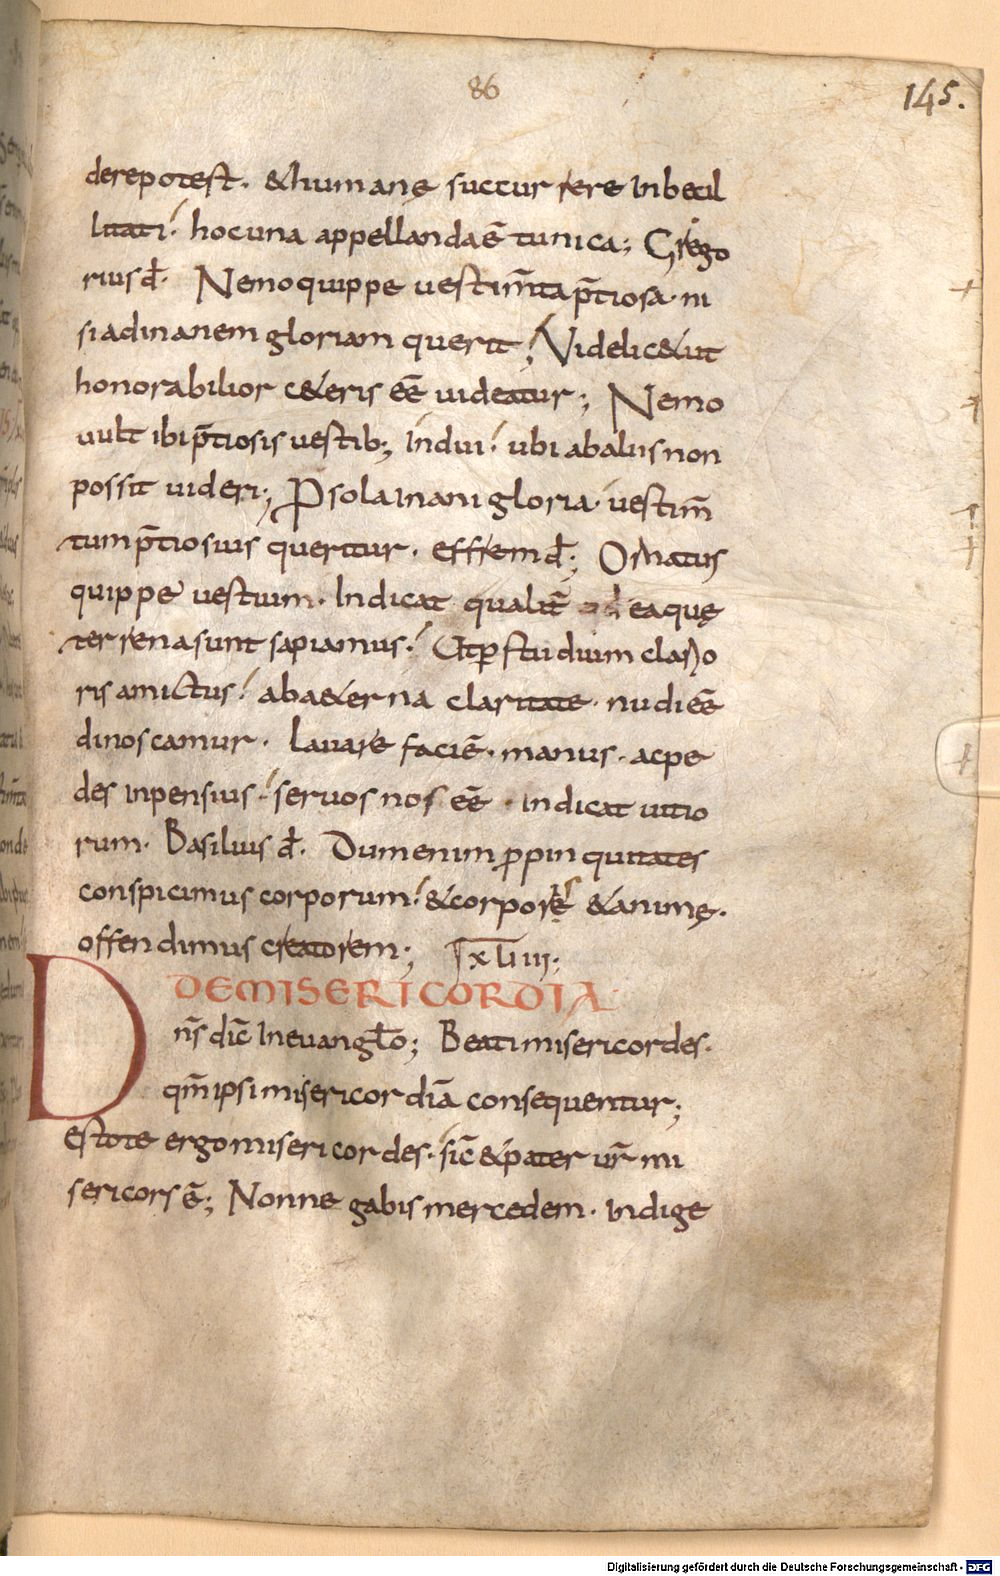 86
145.
derepotest. &humanę succurrere inbecil
litati. hocuna appellandaē tunica; Grego
riusđ. Nemoquippe uestim̄tap̄tiosa. ni
siadinanem gloriam querit; Videlic&ut
honorabilior c&eris eē uideatur; Nemo
uult ibip̄tiosis uestib; indui. ubi abaliisnon
possit uideri; Psola inani gloria. uestim̄
tump̄tiosius queritur. effremđ; Ornatus
quippe uestium. Indicat qualit̄ eaquę
terrenasunt sapiamus. Utꝑstudium clario
ris amictus. aba&erna claritate. nudieē
dinoscamur. Lauare faciē. manus. acpe
des inpensius. seruos nos eē. indicat uitio
rum. Basilius đ. Dumenim ꝓpinquitates
conspicimus corporum. &corporis &animę.
offendimus creatorem; XLIIII;
DEMISERICORDIA
Dn̄s dic̄ Ineuangło; Beatimisericordes.
qm̄ipsimisericordiā consequentur;
estote ergomisericordes. sic̄ &pater ur̄ mi
sericors ē; Nonne gabismercedem. indige
Digitalisierung gefördert durch die Deutsche Forschungsgemeinschaft - DFG